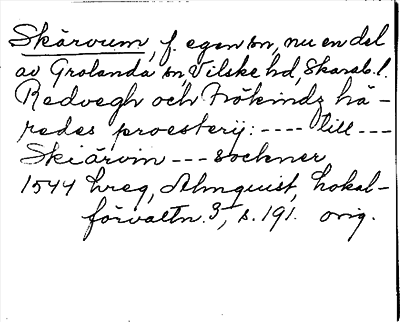 Skärvum, f. egen sn, nu en del
av Grolanda sn, Vilske hd, Skarab. l.
Redvegh och Frökindz hä-
redes proesterij: ---- till ---
Skiärvin --- sochner
1544 hreg, Almquist, Lokal-
förvaltn. 3, s. 191. orig.